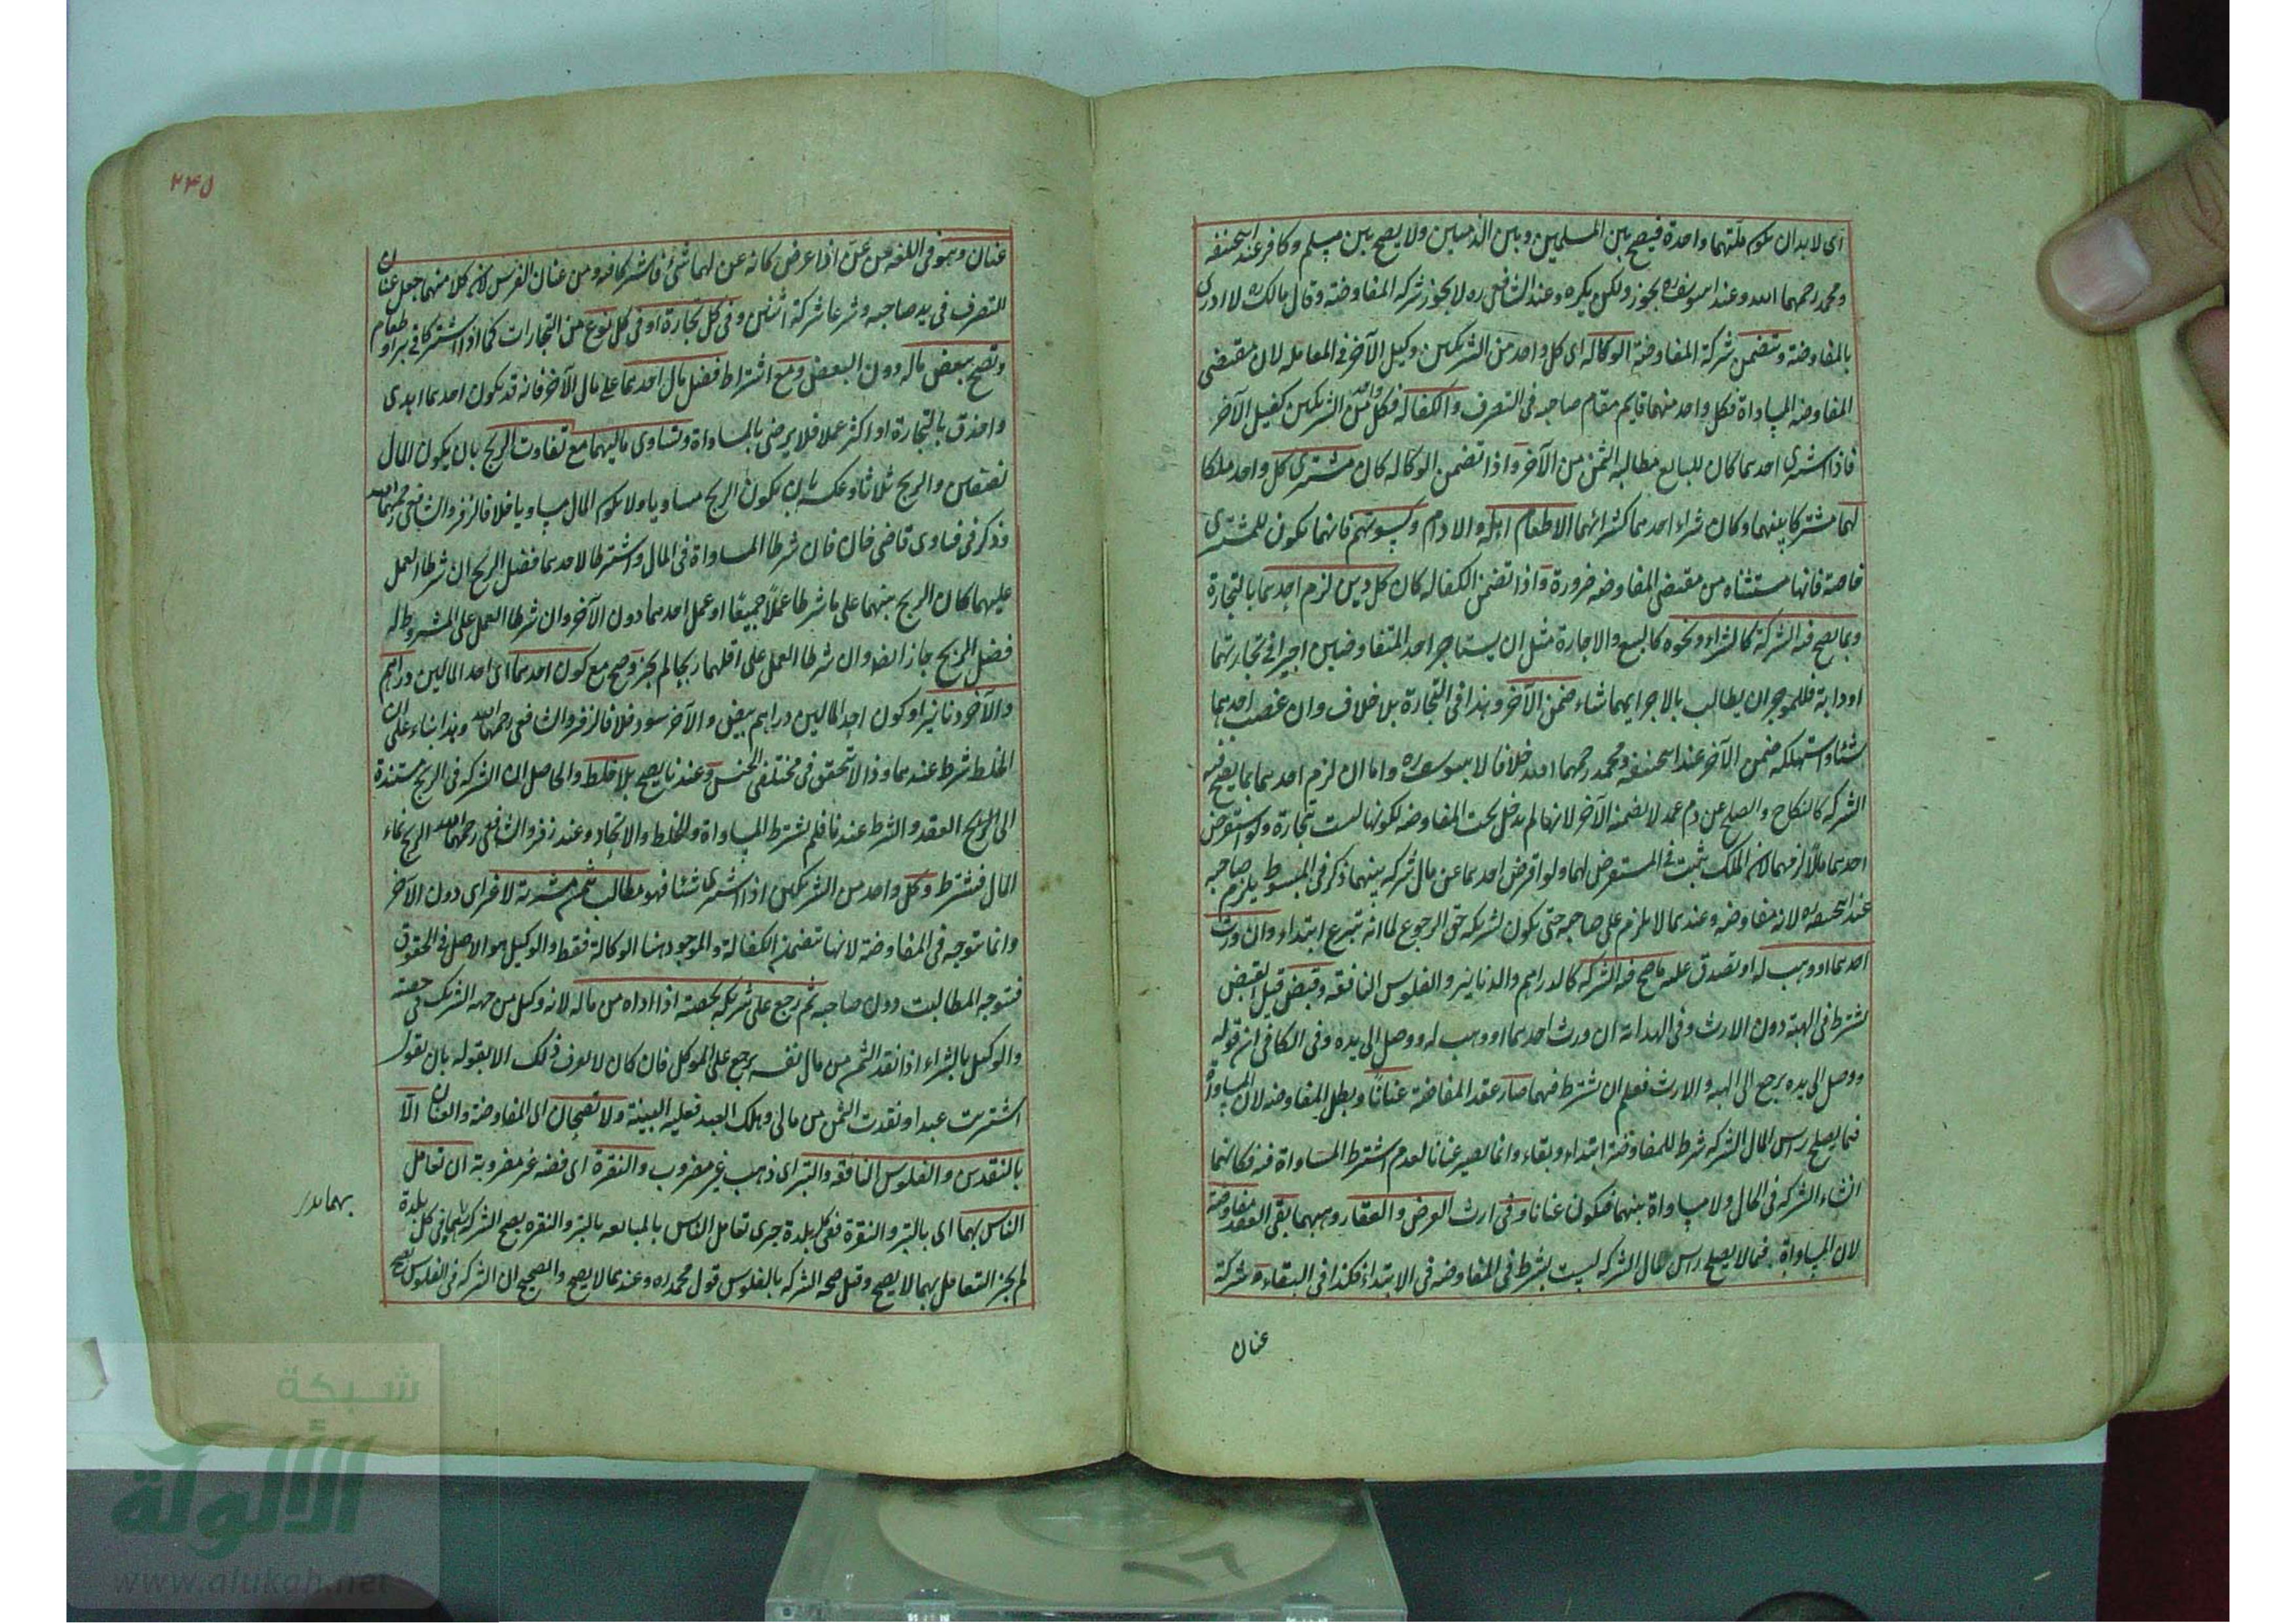 اى لا بد ان يكون ملتهما واحدة فيصح بين المسلمين وبين الذميين ولا يصح بين مسلم وكافر عند ابيحنيفه
ومحمد رحمهما الله وعند ابيوسف ره يجوز ولكن يكره وعند الشافعى ره لا يجوز شركه المفاوضة وقال مالك ره لا ادرى
بالمفاوضة وتتضمن شركة المفاوضة الوكاله اى كل واحد من الشريكين وكيل الآخر فى المعامله لان مقتضى
المفاوضه المساواة فكل واحد منهما قايم مقام صاحبه فى التصرف والكفاله فكل واحد من الشريكين كفيل الآخر
فاذا اشترى احدهما كان للبايع مطالبه الثمن من الآخر واذا تضمن الوكاله كان مشترى كل واحد ملكا
لهما مشتركا بينهما وكان شراء احدهما كشرائهما الا طعام اهله والادام وكسوتهم فانهما يكون للمشترى
خاصة فانها مستثناه من مقتضى المفاوضه ضرورة واذا تضمن الكفاله كان كل دين لزم احدهما بالتجارة
وبما يصح فيه الشركة كالشراء ونحوه كالبيع والاجارة مثل ان يستاجر احد المتفاوضين اجيرا فى تجارتهما
او دابة فللموجر ان يطالب بالاجر ايهما شاء ضمن الآخر وهذا فى التجارة بلا خلاف وان غصب احدهما
شيئا واستهلكه ضمن الآخر عند ابيحنيفه ومحمد رحمهما الله خلافا لابيوسف ره واما ان لزم احدهما بما لا يصح فيه
الشركه كالنكاح والصلح عن دم عمد لا يضمنه الآخر لانها لم يدخل تحت المفاوضه لكونها ليست تجارة ولو استقرض
احدهما مالا لزمهما لان الملك يثبت فى المستقرض لهما ولو اقرض احدهما من مال شركه بينهما ذكر فى المبسوط يلزم صاحبه
عند ابيحنيفه ره لانه مفاوضه وعندهما لا يلزم على صاحبه حتى يكون لشريكه حق الرجوع لما انه تبرع ابتداء وان ورث
احدهما او وهب له او تصدق عليه ما صح فيه الشركه كالدراهم والدنانير والفلوس النافقه وقبض قيل القبض
يشترط فى الهبة دون الارث وفى الهداية ان ورث احدهما او وهب له ووصل الى يده وفى الكافى ان قوله
ووصل الى يده يرجع الى الهبه والارث فعلم ان يشترط فيهما صار عقد المفاضة عنانا ويبطل المفاوضه لان المساواة
فيما يصلح راس المال الشركه شرط للمفاوضة ابتداء وبقاء وانما يصير عنانا لعدم اشتراط المساواة فيه فكانهما
انشاء الشركه فى الحال ولا مساواة بينهما فيكون عنانا وفى ارث العرض والعقار وهبهما بقى العقد مفاوضة
لان المساواة فيما لا يصلح راس مال الشركه ليست بشرط فى المفاوضه فى الابتداء فكذا فى البقاء شركة
عنان
٢٤٥
عنان وهو فى اللغه من عن اذا عرض كانه عن لهما شئ فاشتركا فيه ومن عنان الفرس لان كلا منهما جعل عنان
التصرف فى يد صاحبه وشرعا شركة اثنين وفى كل تجارة او فى كل نوع من التجارات كما اذا اشتركا فى بر او طعام
وتصح ببعض ماله دون البعض ومع اشتراط فضل مال احدهما على مال الآخر فانه قد يكون احدهما اهدى
واحذق بالتجارة او اكثر عملا فلا يرضى بالمساواة وتساوى ماليهما مع تفاوت الربح بان يكون المال
نصفين والربح ثلاثا وعكسه بان يكون الربح مساويا ولا يكون المال مساويا خلافا لزفر والشافعى رحمهما الله
وذكر فى فتاوى قاضى خان فان شرطا المساواة فى المال واشترطا لاحدهما فضل الربح ان شرطا العمل
عليهما كان الربح بينهما على ما شرطا عملا جميعا او عمل احدهما دون الآخر وان شرطا العمل على المشروط له
فضل الربح جاز ايضا وان شرطا العمل على اقلهما ربحا لم يجز وصح مع كون احدهما اى احد المالين دراهم
والآخر دنانير او كون احد المالين دراهم بيض والآخر سود خلافا لزفر والشافعى رحمهما الله وهذا بناء على ان
الخلط شرط عندهما وذا لا يتحقق فى مختلفى الجنس وعندنا يصح بلا خلط والحاصل ان الشركه فى الربح مستندة
الى الربح العقد والشرط عندنا فلم يشترط المساواة والخلط والاتحاد وعند زفر والشافعى رحمهما الله الربح نماء
المال فيشترط وكل واحد من الشريكين اذا اشترى شيئا فهو مطالب بثمن مشريه لا غير اى دون الآخر
وانما يتوجه فى المفاوضة لانها تتضمن الكفالة والموجود هنا الوكالة فقط والوكيل هو الاصل فى الحقوق
فيتوجه المطالبت دون صاحبه ثم رجع على شريكه بحصته اذا اداه من ماله لانه وكيل من جهه الشريك فى حصته
والوكيل بالشراء اذا نقد الثمن من مال نفسه يرجع على الموكل فان كان لا يعرف ذلك الا بقوله بان يقول
اشتريت عبدا ونقدت الثمن من مالى وهلك العبد فعليه البينة ولا تصحان اى المفاوضة والعنان الا
بالنقدين والفلوس النافقه والتبر اى ذهب غير مضروب والنقرة اى فضه غير مضروبة ان تعامل
الناس بهما اى بالتبر والنقرة ففى كل بلدة جرى تعامل الناس بالمبايعه بالتبر والنقره يصح الشركه بهما وفى كل بلدة
لم يجز التعامل بهما لا يصح وقيل صحه الشركه بالفلوس قول محمد ره وعندهما لا يصح والصحيح ان الشركه فى الفلوس يصح
شبكة
الألوكة
www.alukah.net